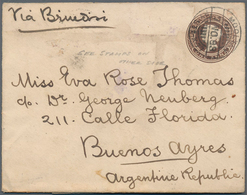 Via Brindisi
SEE STAMPS ON
OTHER SIDE
Miss Eva Rose Thomas
c/o Dr. George Newberg.
211. Calle Florida.
Buenos Ayres
Argentine Republic.